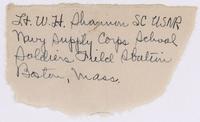 Lt. W. H. Shannon SC USNR
Navy Supply Corps School
Soldiers Field Station
Boston, Mass.